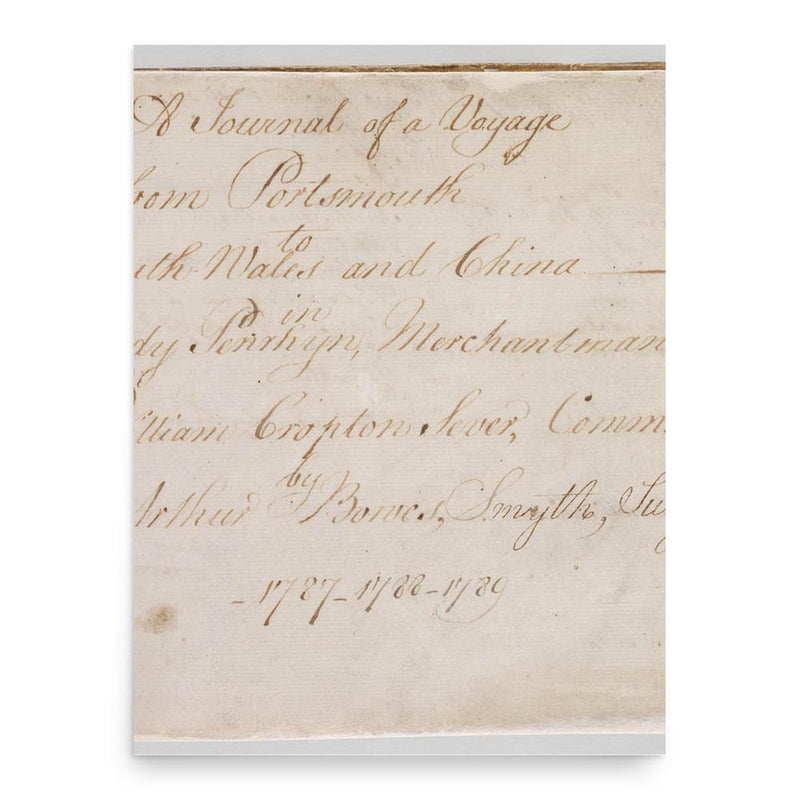 A Journal of a Voyage
rom Portsmouth
to
uth Wales and China
in
dy Penrhyn, Merchantman
illiam Cropton Sever, Comm
by
Arthur Bowes, Smyth, Su
- 1787 - 1788 - 1789